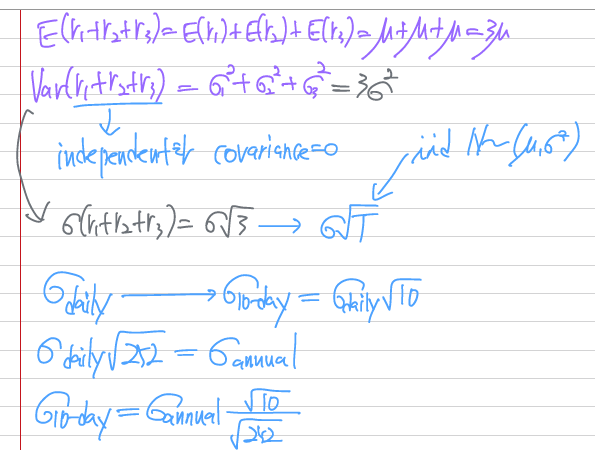 E(r₁+r₂+r₃)=E(r₁)+E(r₂)+E(r₃)=μ+μ+μ=3μ
Var(r₁+r₂+r₃) = σ₁²+σ₂²+σ₃² = 3σ²
independent covariance=0
iid N~(μ,σ²)
σ(r₁+r₂+r₃)= σ√3 → σ√T
σdaily → σ10-day = σdaily√10
σdaily√252 = σannual
σ10-day = σannual √10/√252